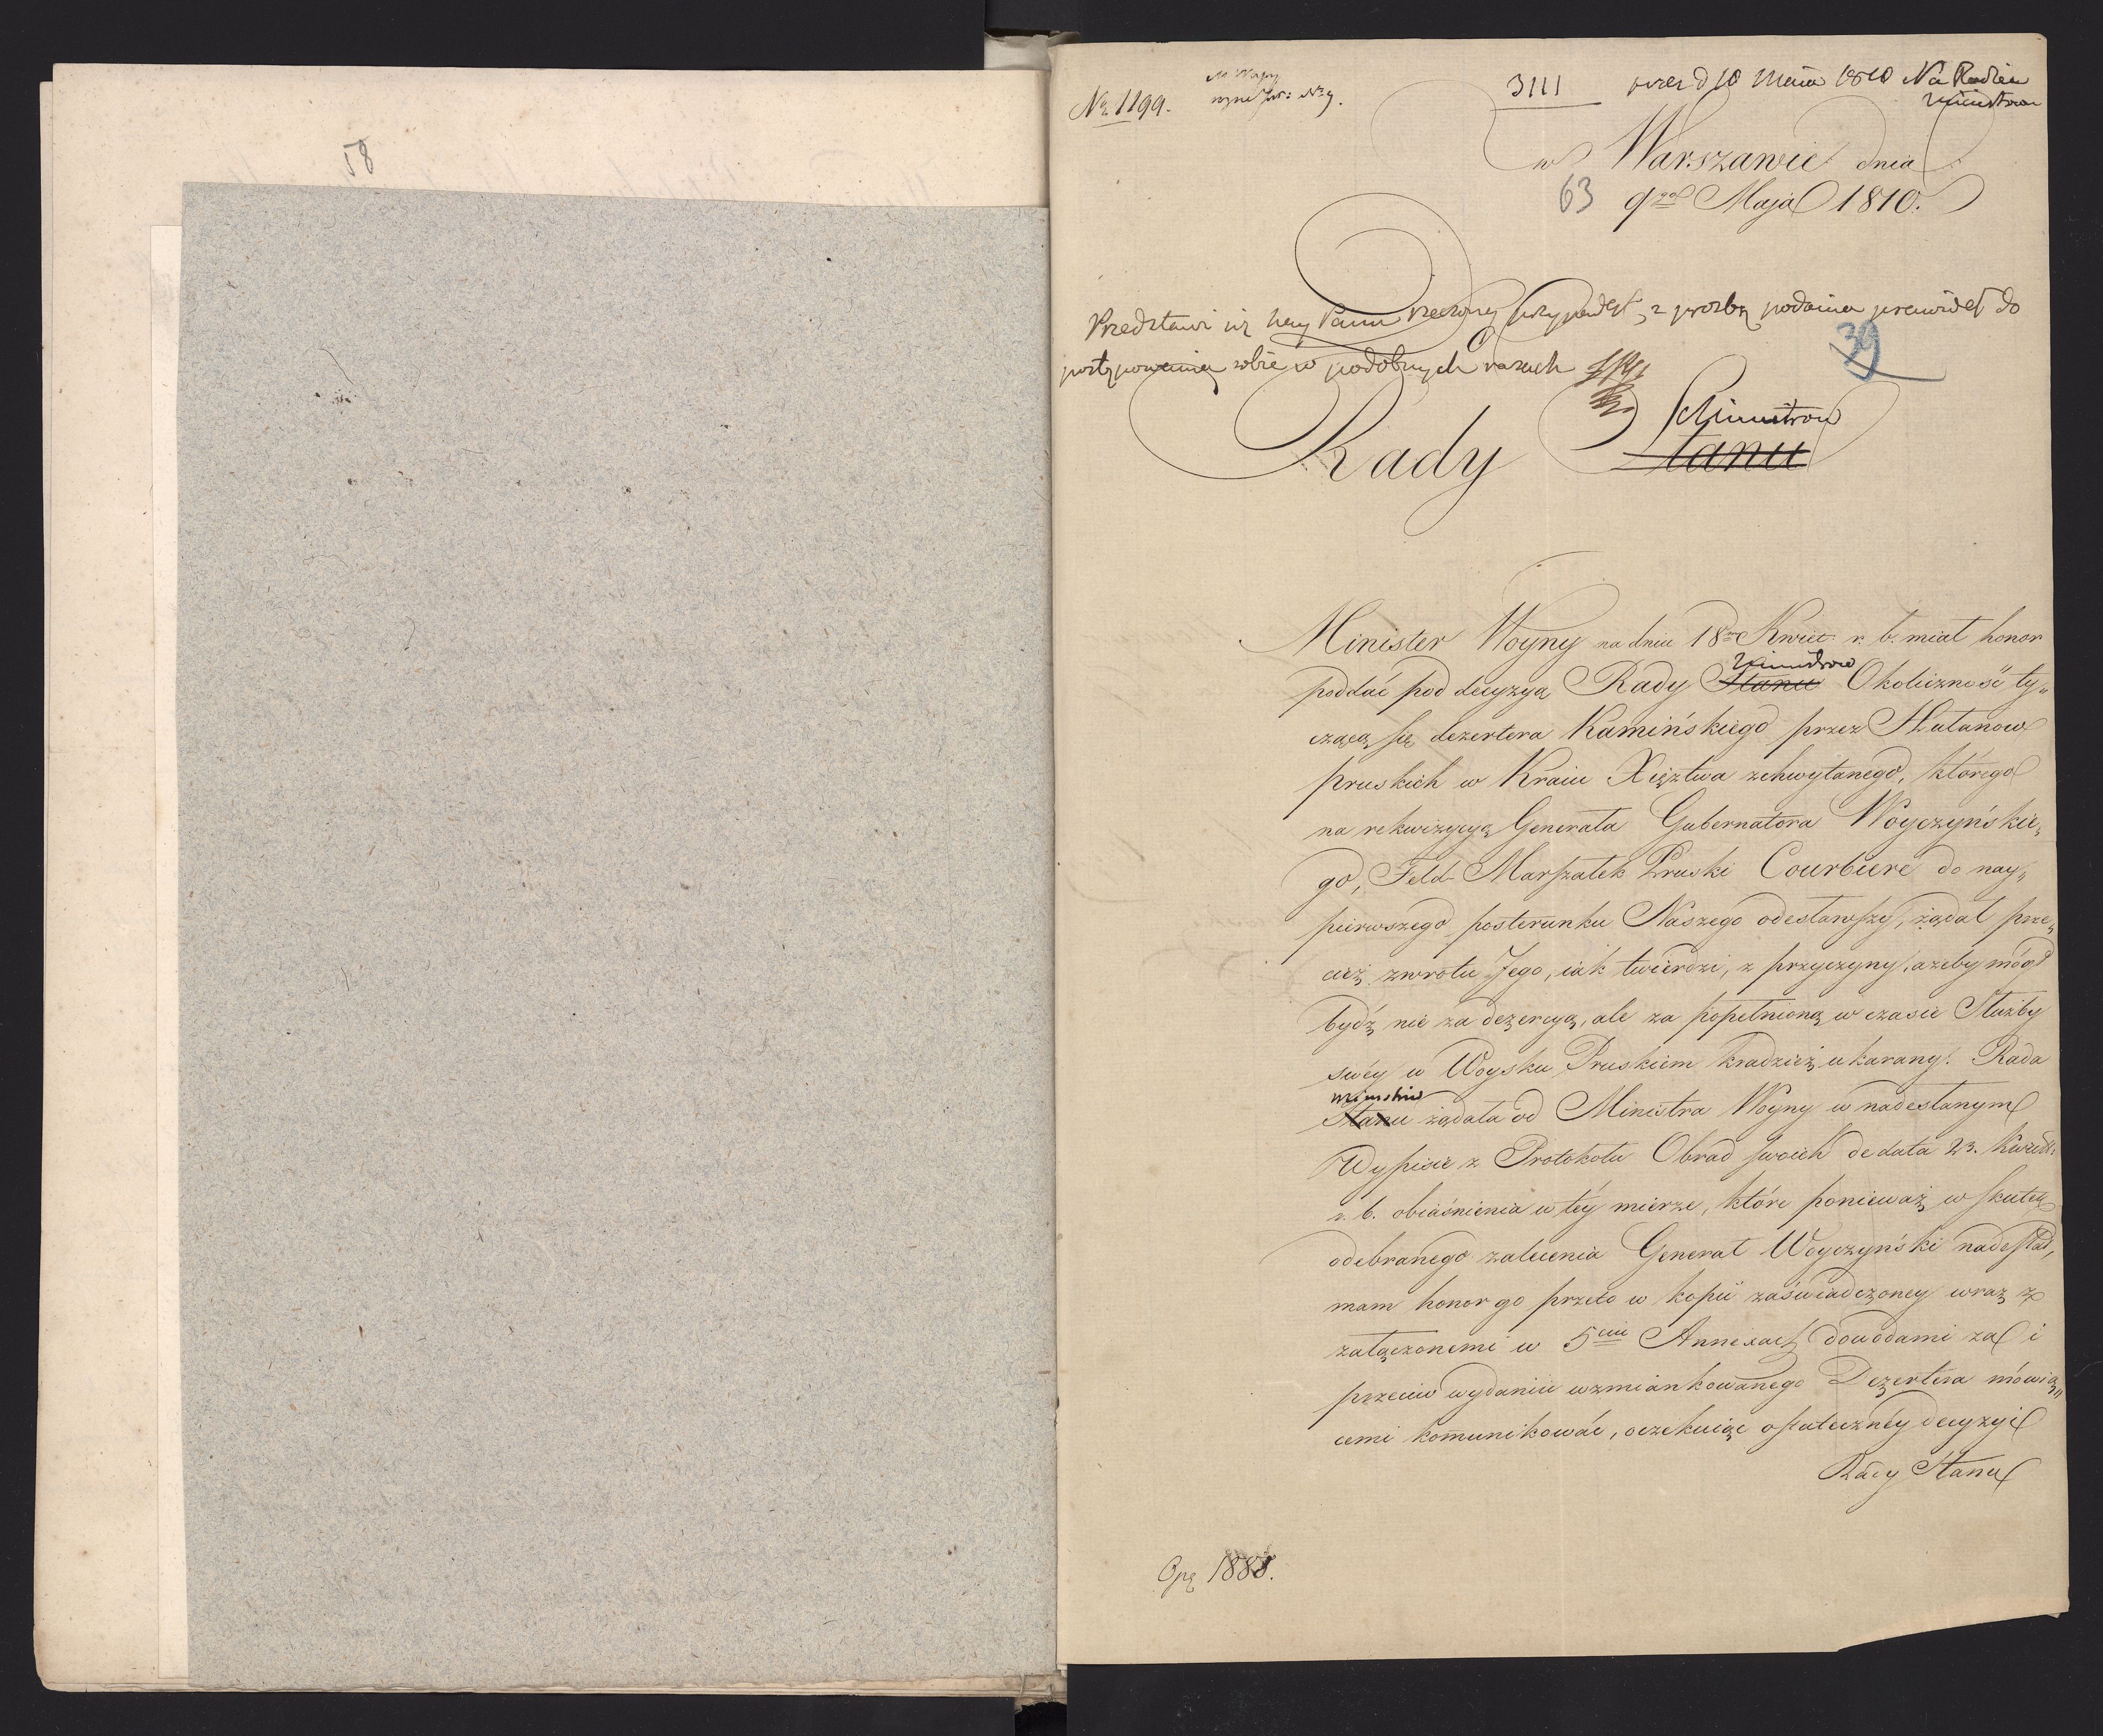 58
N° 1199.
3111
d 10 Maia 1810 Na Radzie
Ministrow
w Warszawie dnia
63 9go Maja 1810.
Przedstawi się Nay Panu rzeczony przypadek, z prozbą podania prawideł do
postępowania sobie w podobnych razach
39
Ministrow
Rady Stanu
Minister Woyny na dniu 18m Kwiet: r. b. miał honor
Ministrow
poddać pod decyzyą Rady Stanu Okoliczność ty„
czącą się dezertera Kamińskiego przez Hułanow
pruskich w Kraiu Xięztwa schwytanego, którego
na rekwizycyą Generała Gubernatora Woyczyńskie„
go, Feld-Marszałek Pruski Courbiere do nay„
pierwszego posterunku Naszego odesławszy, żądał prze„
cież zwrotu Jego, iak twierdzi, z przyczyny, ażeby mógł
bydź nie za dezercyą, ale za popełnioną w czasie Służby
swéy w Woysku Pruskiem kradzież ukarany. Rada
Ministrow
Stanu żądała od Ministra Woyny w nadesłanym
Wypisie z Protokołu Obrad swoich de dato 23. Kwiet:
r. b. obiaśnienia w téy mierze, które ponieważ w skutek
odebranego zalecenia Generał Woyczyński nadesłał,
mam honor go przeto w kopii zaświadczoney wraz z
załączonemi w 5ciu Annexach dowodami za i
przeciw wydaniu wzmiankowanego Dezertera mówią„
cemi komunikować, oczekuiąc ostateczney decyzyi
Rady Stanu
Opę 1888.